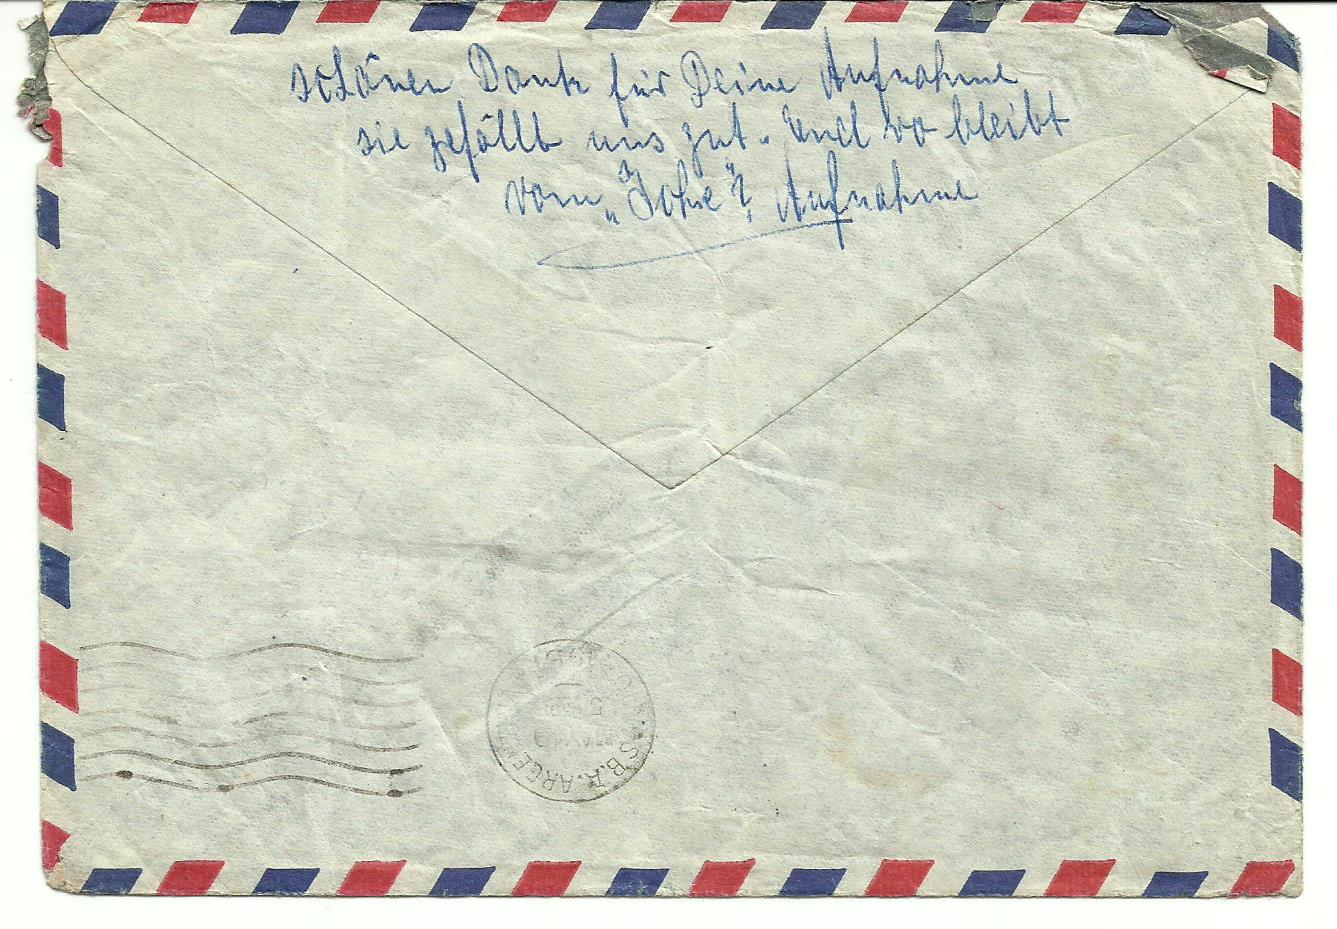 schönen Dank für Deine Aufnahme
sie gefällt uns gut. Und wo bleibt
vom Aufnahme
B.A. ARGE